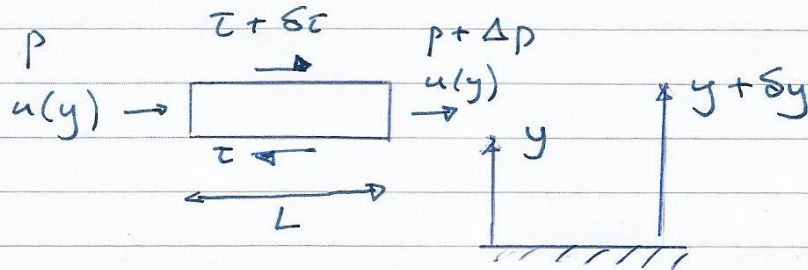 τ + δτ
p
p + Δp
u(y)
u(y)
y + δy
y
τ
L